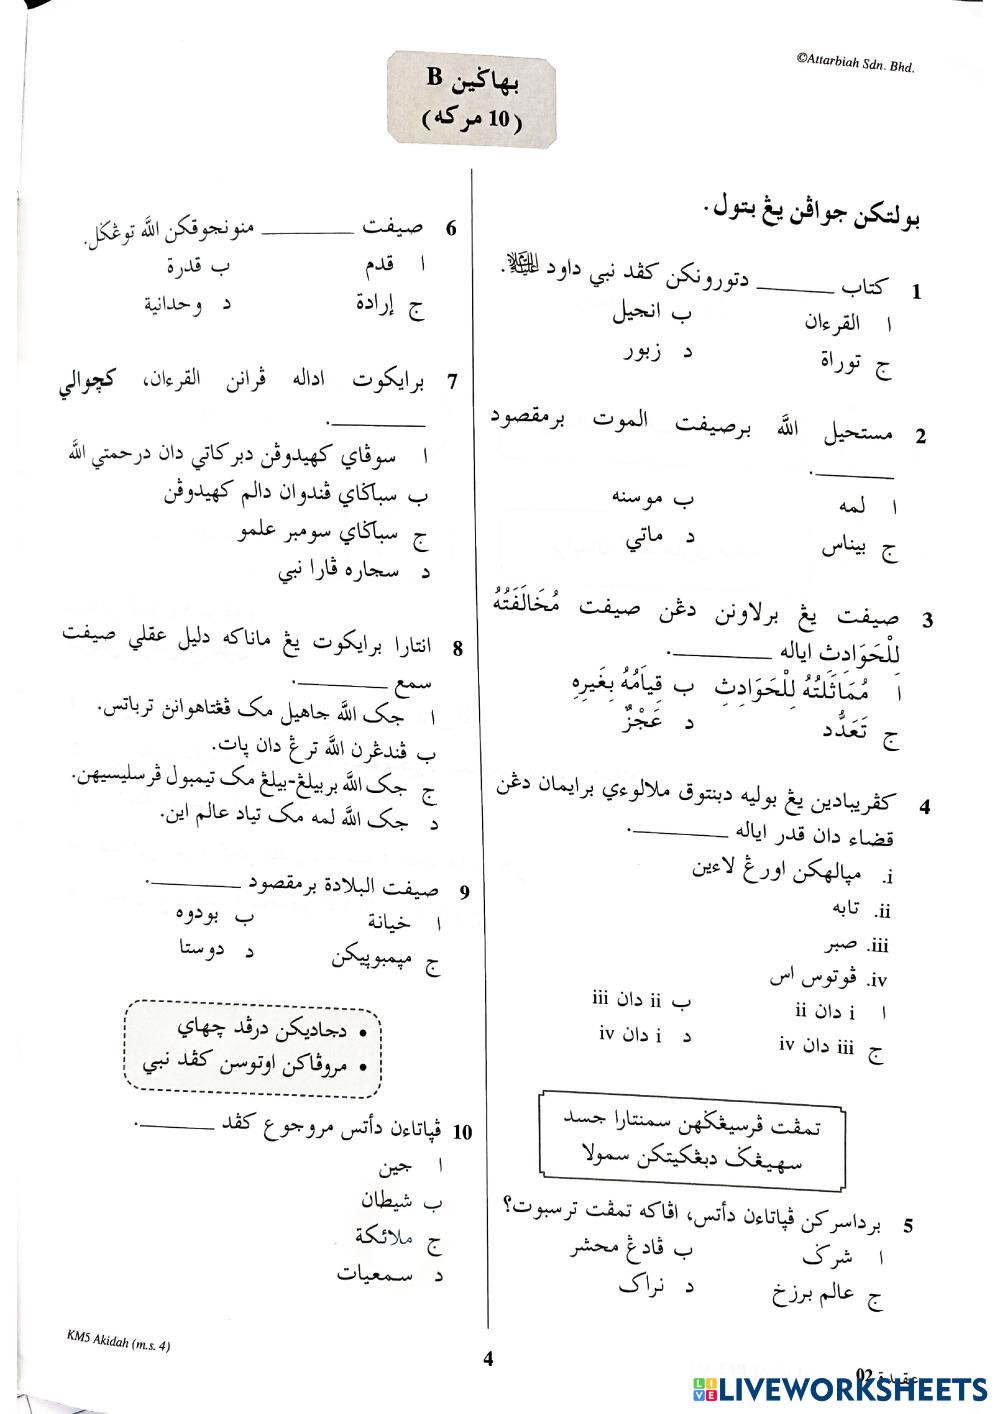 ©Attarbiah Sdn. Bhd.
بهاݢين B
(10 مركه)
بولتكن جواڤن يڠ بتول.
1 كتاب ________ دتورونكن كڤد نبي داود عليه السلام.
ا القرءان ب انجيل
ج توراة د زبور
2 مستحيل الله برصيفت الموت برمقصود
________.
ا لمه ب موسنه
ج بيناس د ماتي
3 صيفت يڠ برلاونن دڠن صيفت مُخَالَفَتُهُ
لِلْحَوَادِثِ اياله ________.
ا مُمَاثَلَتُهُ لِلْحَوَادِثِ ب قِيَامُهُ بِغَيْرِهِ
ج تَعَدُّد د عَجْزٌ
4 كڤريبادين يڠ بوليه دبنتوق ملالوءي برايمان دڠن
قضاء دان قدر اياله ________.
i. مڽالهكن اورڠ لاءين
ii. تابه
iii. صبر
iv. ڤوتوس اس
ا i دان ii ب ii دان iii
ج iii دان iv د i دان iv
تمڤت ڤرسيڠݢهن سمنتارا جسد
سهيڠݢ دبڠكيتكن سمولا
5 برداسركن ڤڽاتاءن دأتس، اڤاكه تمڤت ترسبوت؟
ا شرݢ ب ڤادڠ محشر
ج عالم برزخ د نراك
6 صيفت ________ منونجوقكن الله توڠݢل.
ا قدم ب قدرة
ج إرادة د وحدانية
7 برايكوت اداله ڤرانن القرءان، كچوالي
________.
ا سوڤاي كهيدوڤن دبركاتي دان درحمتي الله
ب سباݢاي ڤندوان دالم كهيدوڤن
ج سباݢاي سومبر علمو
د سجاره ڤارا نبي
8 انتارا برايكوت يڠ ماناكه دليل عقلي صيفت
سمع ________.
ا جك الله جاهيل مك ڤڠتاهوانڽ ترباتس.
ب ڤندڠرن الله ترڠ دان ڽات.
ج جك الله بربيلڠ-بيلڠ مك تيمبول ڤرسليسيهن.
د جك الله لمه مك تياد عالم اين.
9 صيفت البلادة برمقصود ________.
ا خيانة ب بودوه
ج مڽمبوڽيكن د دوستا
• دجاديكن درڤد چهاي
• مروڤاكن اوتوسن كڤد نبي
10 ڤڽاتاءن دأتس مروجوع كڤد ________.
ا جين
ب شيطان
ج ملائكة
د سمعيات
KM5 Akidah (m.s. 4)
4
عقيدة 02
LIVEWORKSHEETS